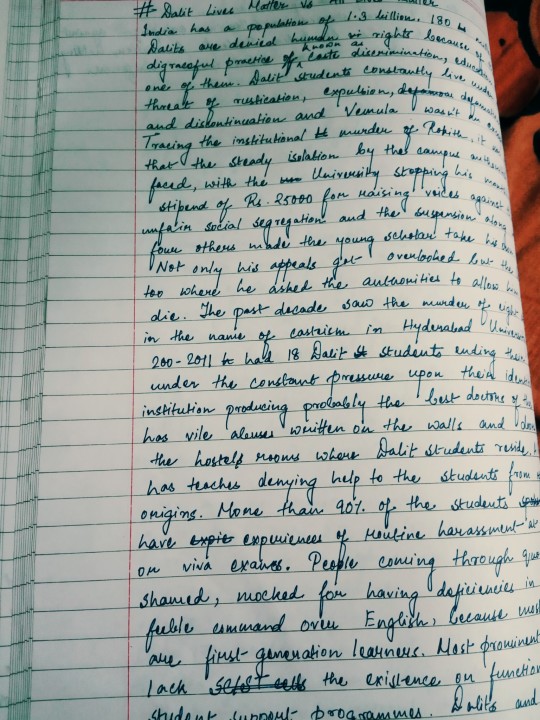 # Dalit Lives Matter vs All Lives Matter
India has a population of 1.3 billion. 180
Dalits are denied human rights because of
digraceful practice of known as caste discrimination,
one of them. Dalit students constantly live under
threat of rustication, expulsion,
and discontinuation and Vemula wasn't
Tracing the institutional murder of Rohith, it
that the steady isolation by the campus
faced, with the University stopping his
stipend of Rs. 25000 for raising voices against
unfair social segregation and the suspension along
four others made the young scholar take his
Not only his appeals got overlooked but the
too where he asked the authorities to allow him
die. The past decade saw the murder of eight
in the name of casteism in Hyderabad
200-2011 had 18 Dalit students ending their
under the constant pressure upon their
institution producing probably the best doctors of the
has vile abuses written on the walls and
the hostels rooms where Dalit students reside.
has teaches denying help to the students from
origins. More than 90% of the students
have experiences of routine harassment
on viva exams. People coming through
shamed, mocked for having deficiencies in
feeble command over English, because most
are first-generation learners. Most prominent
lack the existence on function
student support programmes. Dalits and